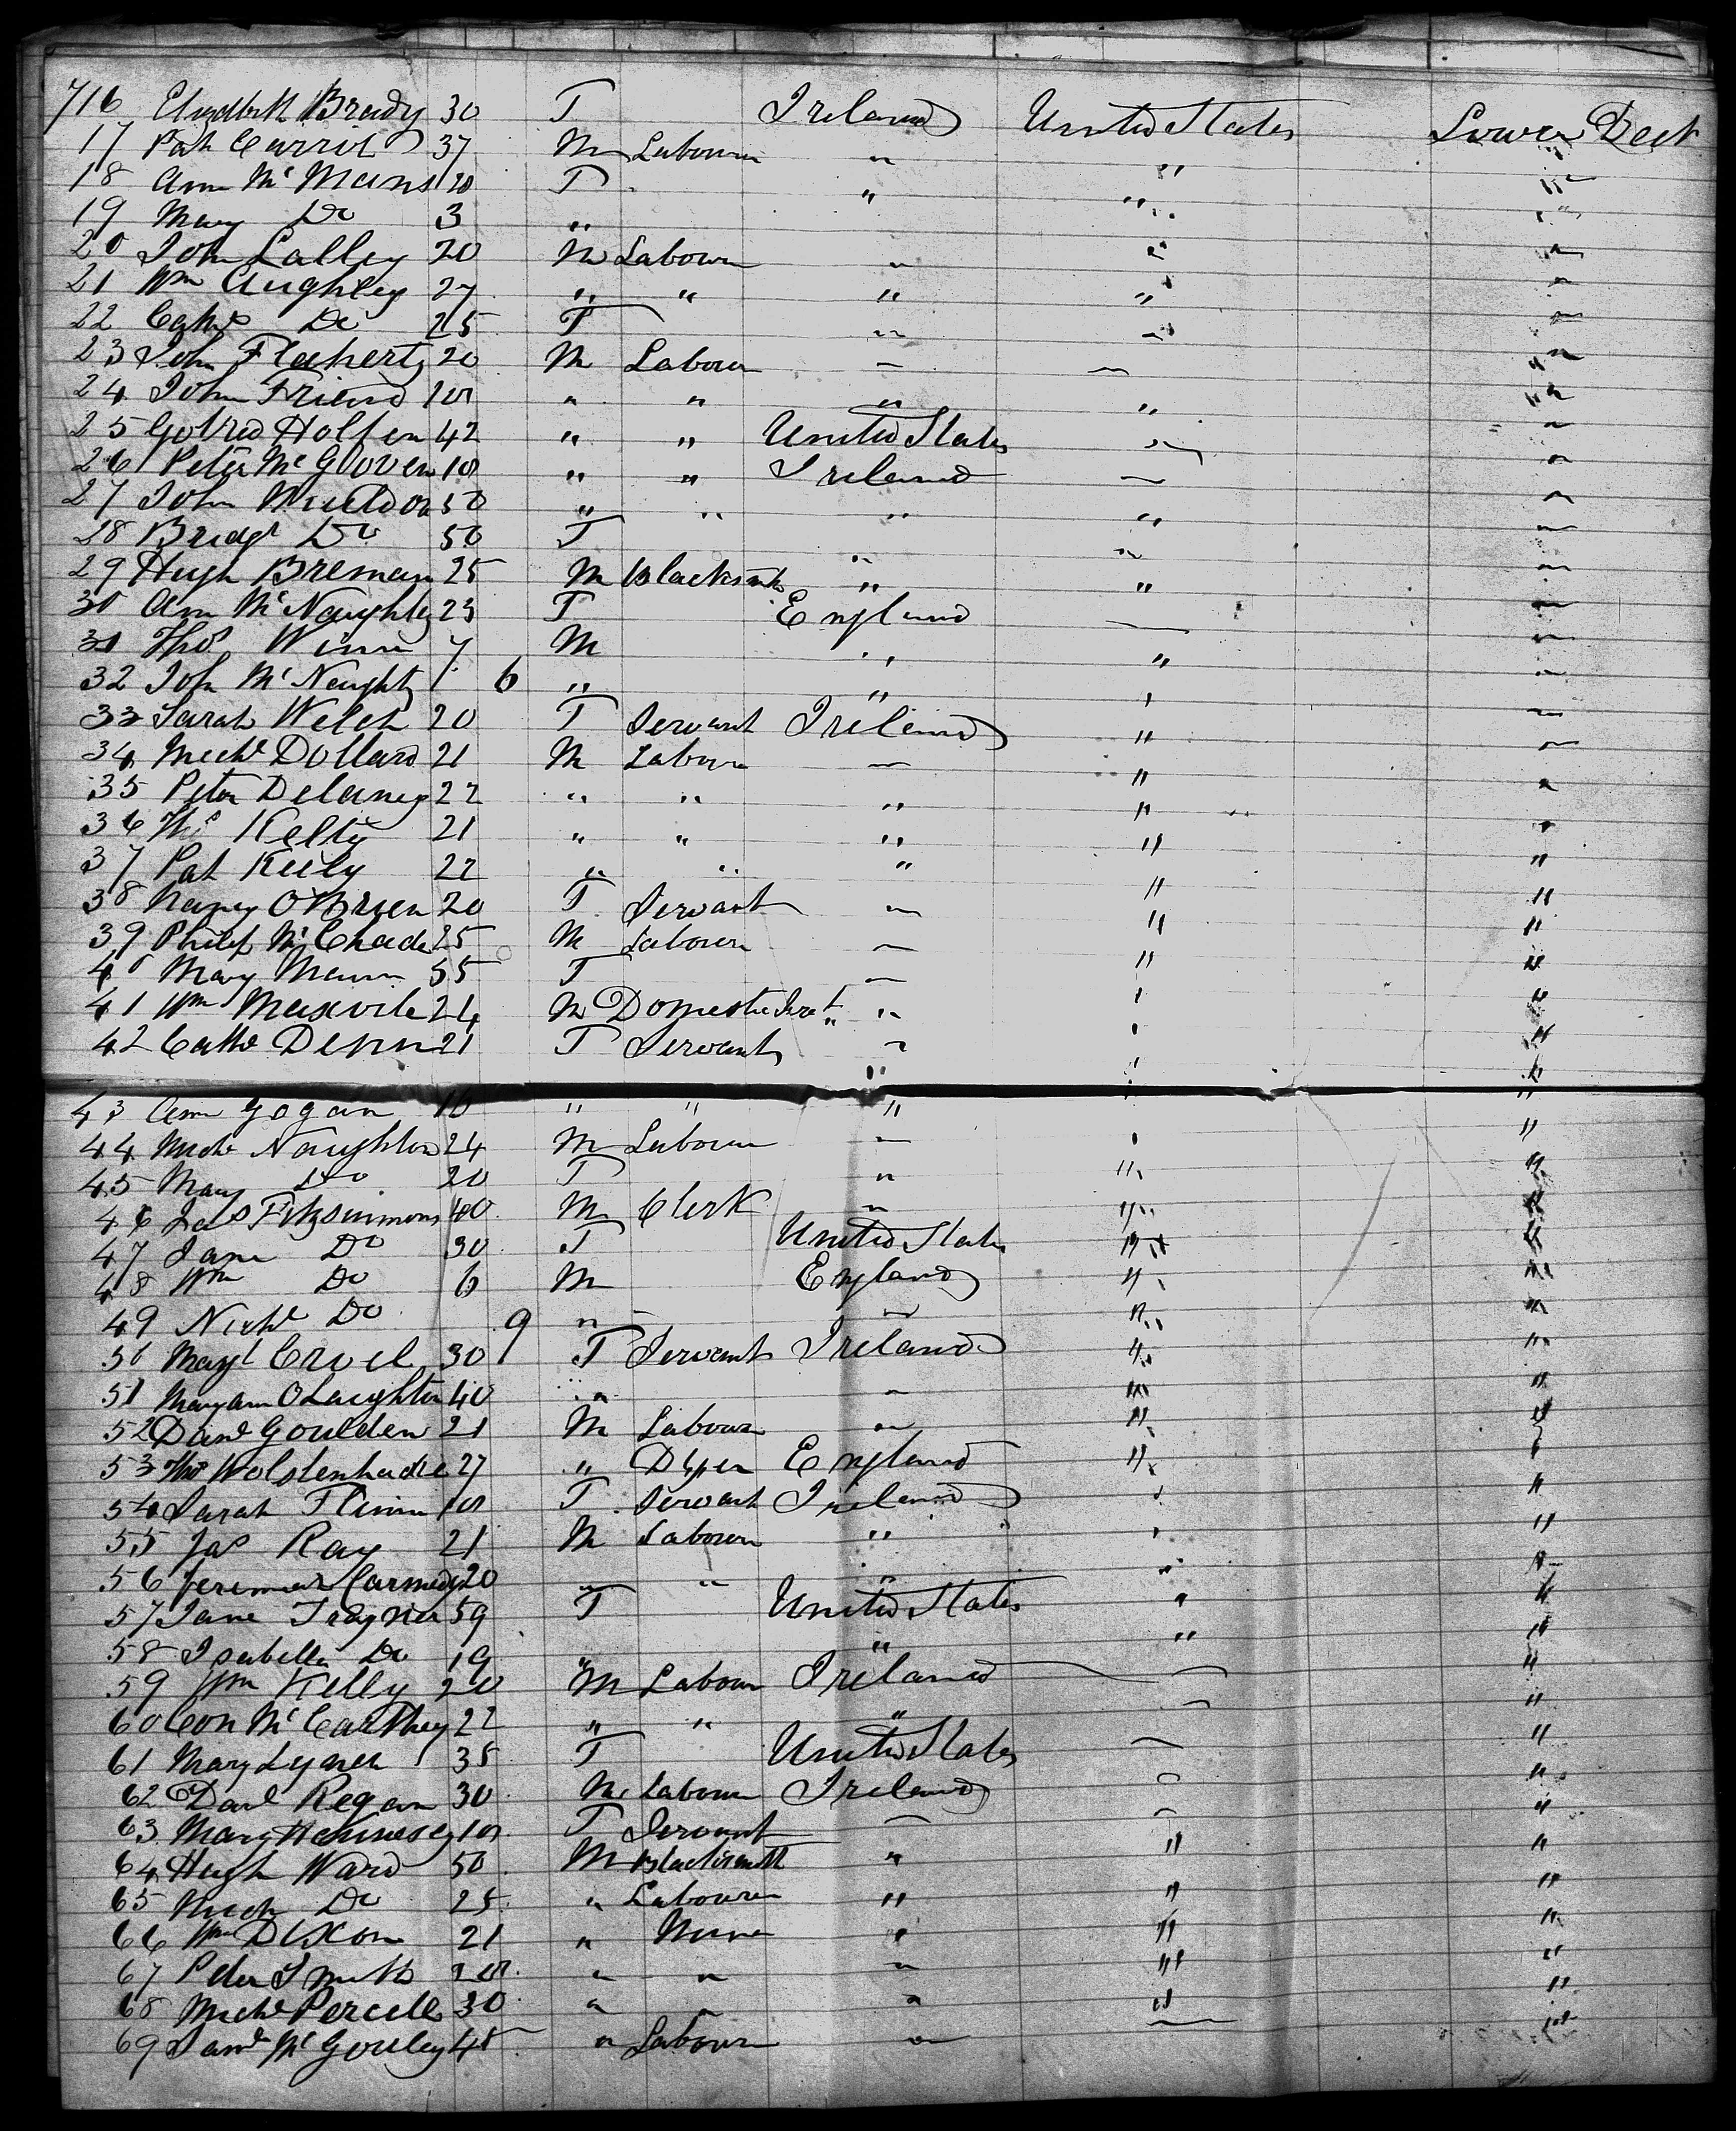 716 Elizabeth Brady 30 F Ireland United States Lower Deck
17 Pat Carrol 37 M Labourer " " "
18 Ann Mc Mans 20 F " " "
19 Mary Do 3 " " "
20 John Lalley 20 M Labourer " " "
21 Wm Aughley 27 " " " " "
22 Cathe Do 25 F " " "
23 John Flaherty 20 M Labourer " " "
24 John Friend 18 " " " " "
25 Gotred Holfen 42 " " United States " "
26 Peter McGloven 18 " " Ireland " "
27 John Muldon 50 " " " " "
28 Bridgt Do 50 F " " "
29 Hugh Breman 25 M Blacksmith " " "
30 Ann McNaughty 23 F England " "
31 Thos Winn 7 M " " "
32 Joh McNaughty 6 " " " "
33 Sarah Welch 20 F Servant Ireland " "
34 Michl Dollard 21 M Labour " " "
35 Peter Delaney 22 " " " " "
36 Thos Kelty 21 " " " " "
37 Pat Kiely 22 " " " " "
38 Nancy O'Brien 20 F Servant " " "
39 Philip McChade 25 M Labourer " " "
40 Mary Mann 55 F " " "
41 Wm Maxwile 24 M Domestic Sert " " "
42 Cathe Denn 21 F Servant " " "
43 Ann Gogan 16 " " " " "
44 Miche Naughton 24 M Labourer " " "
45 Mary Do 20 F " " "
46 Jas Fitzsimmons 40 M Clerk " " "
47 Jane Do 30 F United States " "
48 Wm Do 6 M England " "
49 Nichl Do 9 " " " "
50 Magt Cruel 30 F Servant Ireland " "
51 Maryann OLaughton 40 " " " "
52 Danl Goulden 21 M Labour " " "
53 Thos Wolstenhadle 27 " Dyer England " "
54 Sarah Flinn 18 F Servant Ireland " "
55 Jas Ray 21 M Labourer " " "
56 Jeremiah Carmedy 20 " " " " "
57 Jane Traynor 59 F United States " "
58 Isabella Do 19 " " " "
59 Wm Kelly 20 M Labour Ireland " "
60 Con McCarthey 22 " " " " "
61 Mary Lynch 35 F United States " "
62 Danl Regan 30 M Labour Ireland " "
63 Mary Hennesey 18 F Servant " " "
64 Hugh Ward 50 M Blacksmith " " "
65 Mich Do 25 " Labourer " " "
66 Wm Dixon 21 " Miner " " "
67 Peter Smith 28 " " " " "
68 Michl Percell 30 " " " " "
69 Saml McGouley 45 " Labour " " "